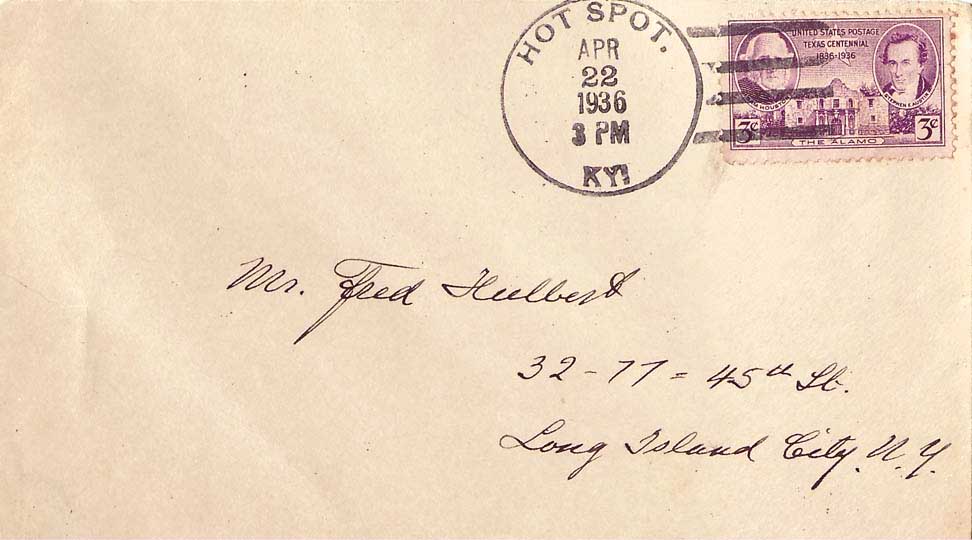 HOT SPOT.
APR
22
1936
3 PM
KY.
UNITED STATES POSTAGE
TEXAS CENTENNIAL
1836-1936
HOUSTON
STEPHEN F. AUSTIN
3¢ 3¢
THE ALAMO
Mr. Fred Hulbert
32-77=45th St.
Long Island City, N.Y.